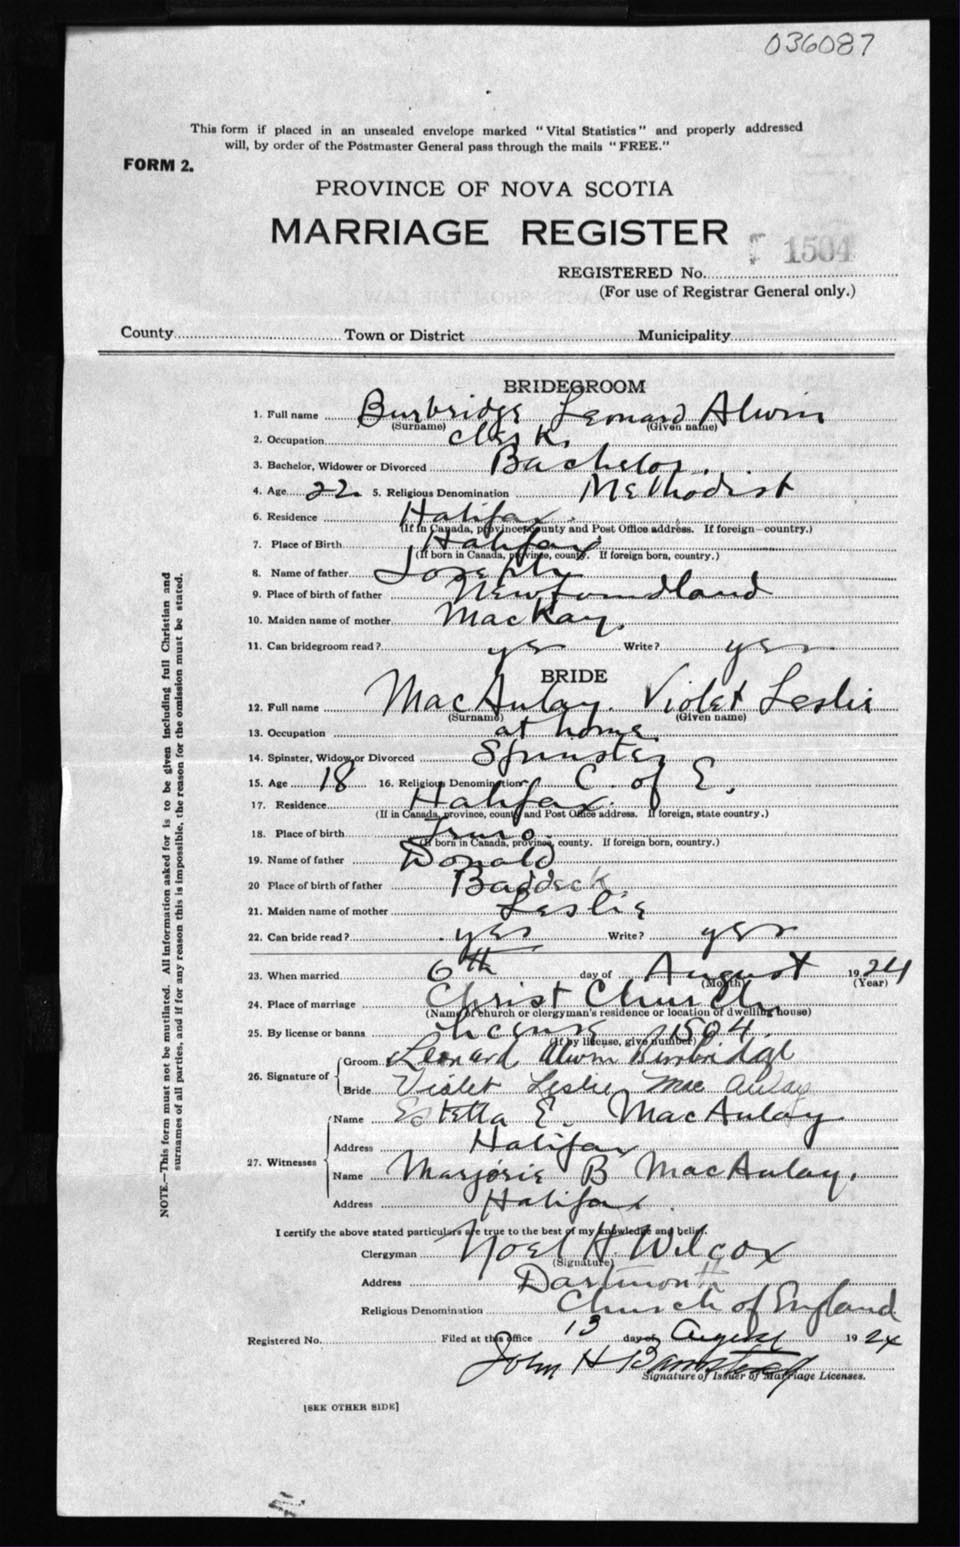 036087
This form if placed in an unsealed envelope marked "Vital Statistics" and properly addressed
will, by order of the Postmaster General pass through the mails "FREE."
FORM 2.
PROVINCE OF NOVA SCOTIA
MARRIAGE REGISTER
1504
REGISTERED No.
(For use of Registrar General only.)
County Town or District Municipality
BRIDEGROOM
1. Full name Burbridge Leonard Alwin
(Surname) (Given name)
2. Occupation clerk.
3. Bachelor, Widower or Divorced Bachelor.
4. Age 22. 5. Religious Denomination Methodist
6. Residence Halifax.
(If in Canada, province, county and Post Office address. If foreign—country.)
7. Place of Birth Halifax
(If born in Canada, province, county. If foreign born, country.)
8. Name of father Joseph
9. Place of birth of father Newfoundland
10. Maiden name of mother MacKay.
11. Can bridegroom read? yes Write? yes
BRIDE
12. Full name MacAulay. Violet Leslie
(Surname) (Given name)
13. Occupation at home.
14. Spinster, Widow or Divorced Spinster
15. Age 18 16. Religious Denomination C. of E.
17. Residence Halifax.
(If in Canada, province, county and Post Office address. If foreign, state country.)
18. Place of birth Truro.
(If born in Canada, province, county. If foreign born, country.)
19. Name of father Donald
20 Place of birth of father Baddeck.
21. Maiden name of mother Leslie
22. Can bride read? yes Write? yes
23. When married 6th day of August 1924
(Month) (Year)
24. Place of marriage Christ Church.
(Name of church or clergyman's residence or location of dwelling house)
25. By license or banns License 1504.
(If by license, give number)
26. Signature of Groom Leonard Alwin Burbridge
Bride Violet Leslie Mac Aulay
27. Witnesses Name Estella E. MacAulay
Address Halifax
Name Marjorie B MacAulay.
Address Halifax.
I certify the above stated particulars are true to the best of my knowledge and belief.
Clergyman Noel H. Wilcox
(Signature)
Address Dartmouth
Religious Denomination Church of England
Registered No. Filed at this office 13 day of August 1924
John H
Signature of Issuer of Marriage Licenses.
[SEE OTHER SIDE]
NOTE.—This form must not be mutilated. All information asked for is to be given including full Christian and
surnames of all parties, and if for any reason this is impossible, the reason for the omission must be stated.